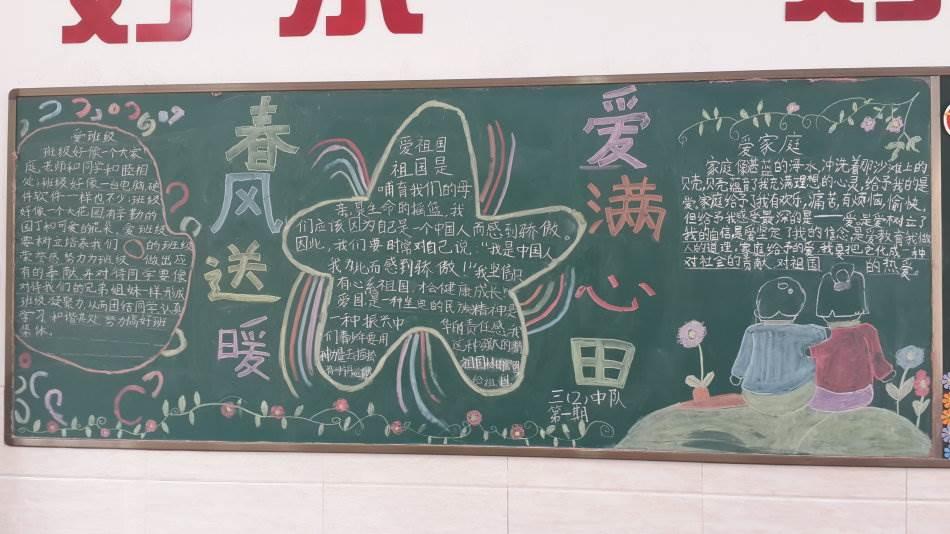 爱班级
班级好像一个大家
庭，老师和同学和睦相
处；班级好像一台电脑，硬
件软件一样也不少；班级
好像一个大花园，有辛勤的
园丁和可爱的花朵。爱班级
要树立培养我们的班级
荣誉感，努力为班级做出应
有的奉献，并对待同学要像
对待我们的兄弟姐妹一样，形成
班级凝聚力，从而团结同学，认真
学习，和谐共处，努力搞好班
集体。
春风送暖
爱祖国
祖国是
哺育我们的母
亲，是生命的摇篮，我
们应该因为自己是一个中国人而感到骄傲。
因此，我们要时常对自己说：“我是中国人
我为此而感到骄傲！”我坚信只
有心系祖国，才会健康成长”
爱国，是一种坚定的民族精神，是
一种振兴中华的责任感，我
们青少年要用这种强大的精
爱满心田
三（2）中队
第一期
爱家庭
家庭像湛蓝的海水，冲洗着那沙滩上的
贝壳，贝壳蕴育了我充满理想的心灵，给予我的是
爱；家庭给予了我有欢乐，痛苦，有烦恼，愉快，
但给予我感受最深的是——爱，是爱树立了
我的自信，是爱坚定了我的信念，是爱教育我做
人的道理，家庭给予的爱，我要把它化成一种
对社会的贡献，对祖国的热爱。